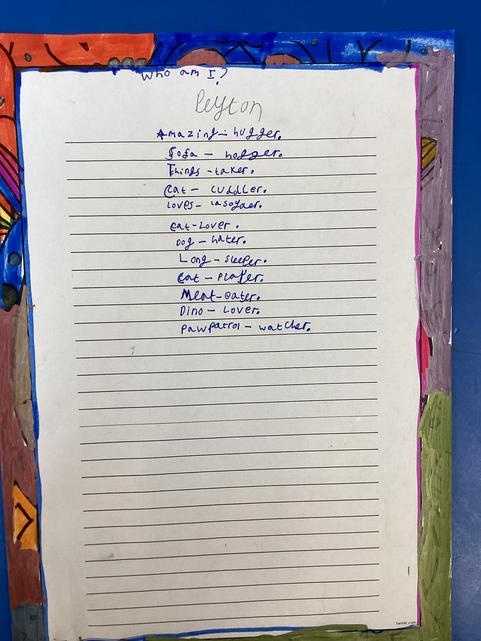 Who am I?
Peyton
Amazing - hugger.
Sofa - hogger.
Things - taker.
Cat - cuddler.
Loves - lasagner.
Cat - Lover.
Dog - hater.
Long - sleeper.
Cat - Player.
Meat - eater.
Dino - Lover.
Pawpatrol - watcher.